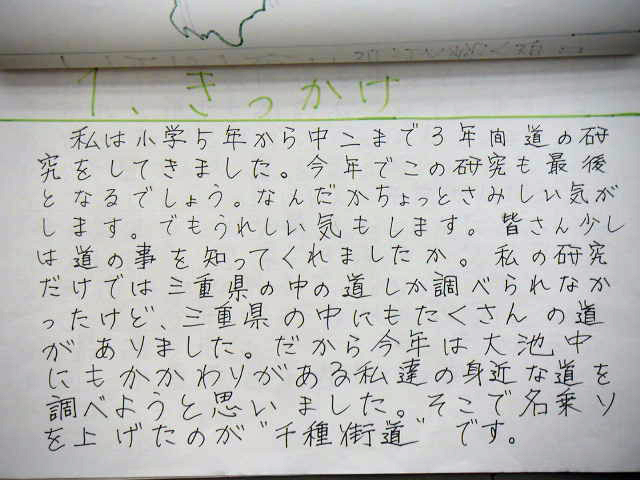 1、きっかけ
私は小学5年から中二まで3年間道の研
究をしてきました。今年でこの研究も最後
となるでしょう。なんだかちょっとさみしい気が
します。でもうれしい気もします。皆さん少し
は道の事を知ってくれましたか。私の研究
だけでは三重県の中の道しか調べられなか
ったけど、三重県の中にもたくさんの道
がありました。だから今年は大池中
にもかかわりがある私達の身近な道を
調べようと思いました。そこで名乗り
を上げたのが"千種街道"です。